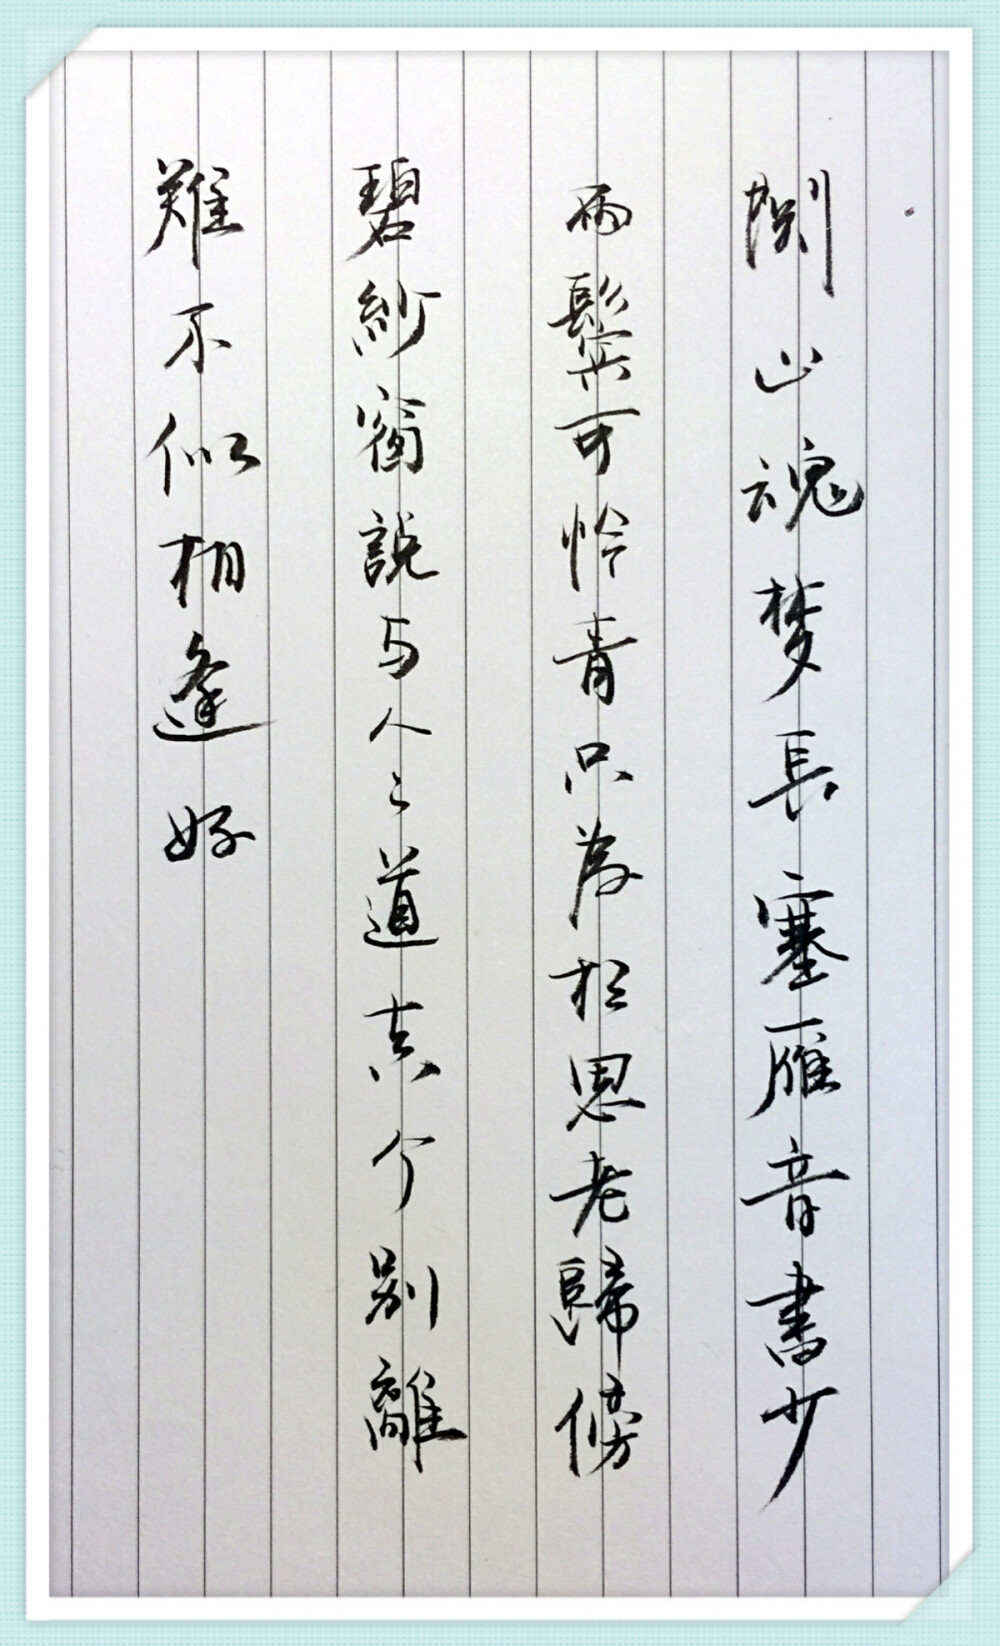 関山魂梦長塞雁音書少
兩鬢可怜青只為相思老歸傍
碧紗窗說与人〻道真个别離
難不似相逢好